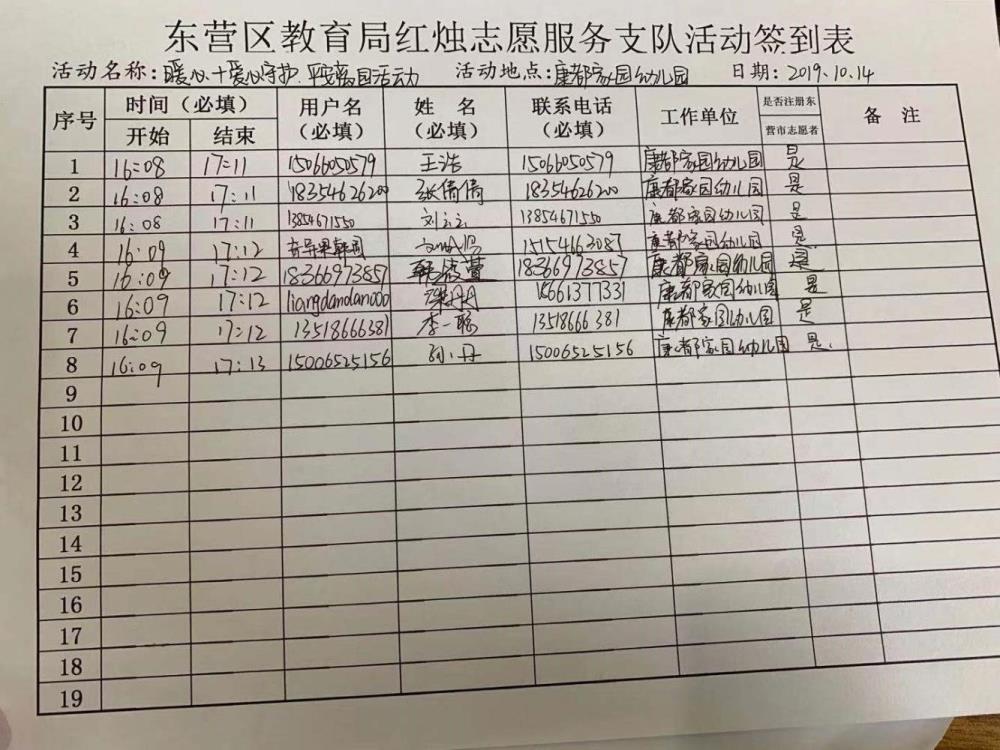 东营区教育局红烛志愿服务支队活动签到表
活动名称：暖心+爱心守护 平安离园活动 活动地点：康都家园幼儿园 日期：2019.10.14
序号 时间（必填） 用户名（必填） 姓名（必填） 联系电话（必填） 工作单位 是否注册东营市志愿者 备注
开始 结束
1 16:08 17:11 15066050579 王浩 15066050579 康都家园幼儿园 是
2 16:08 17:11 18354626200 张倩倩 18354626200 康都家园幼儿园 是
3 16:08 17:11 13854671550 刘云云 13854671550 康都家园幼儿园 是
4 16:09 17:12 15154663087 康都家园幼儿园 是
5 16:09 17:12 18366973857 18366973857 康都家园幼儿园 是
6 16:09 17:12 liangdandan000 梁丹丹 15661377331 康都家园幼儿园 是
7 16:09 17:12 13518666381 李一聪 13518666381 康都家园幼儿园 是
8 16:09 17:13 15006525156 丹 15006525156 康都家园幼儿园 是.
9
10
11
12
13
14
15
16
17
18
19